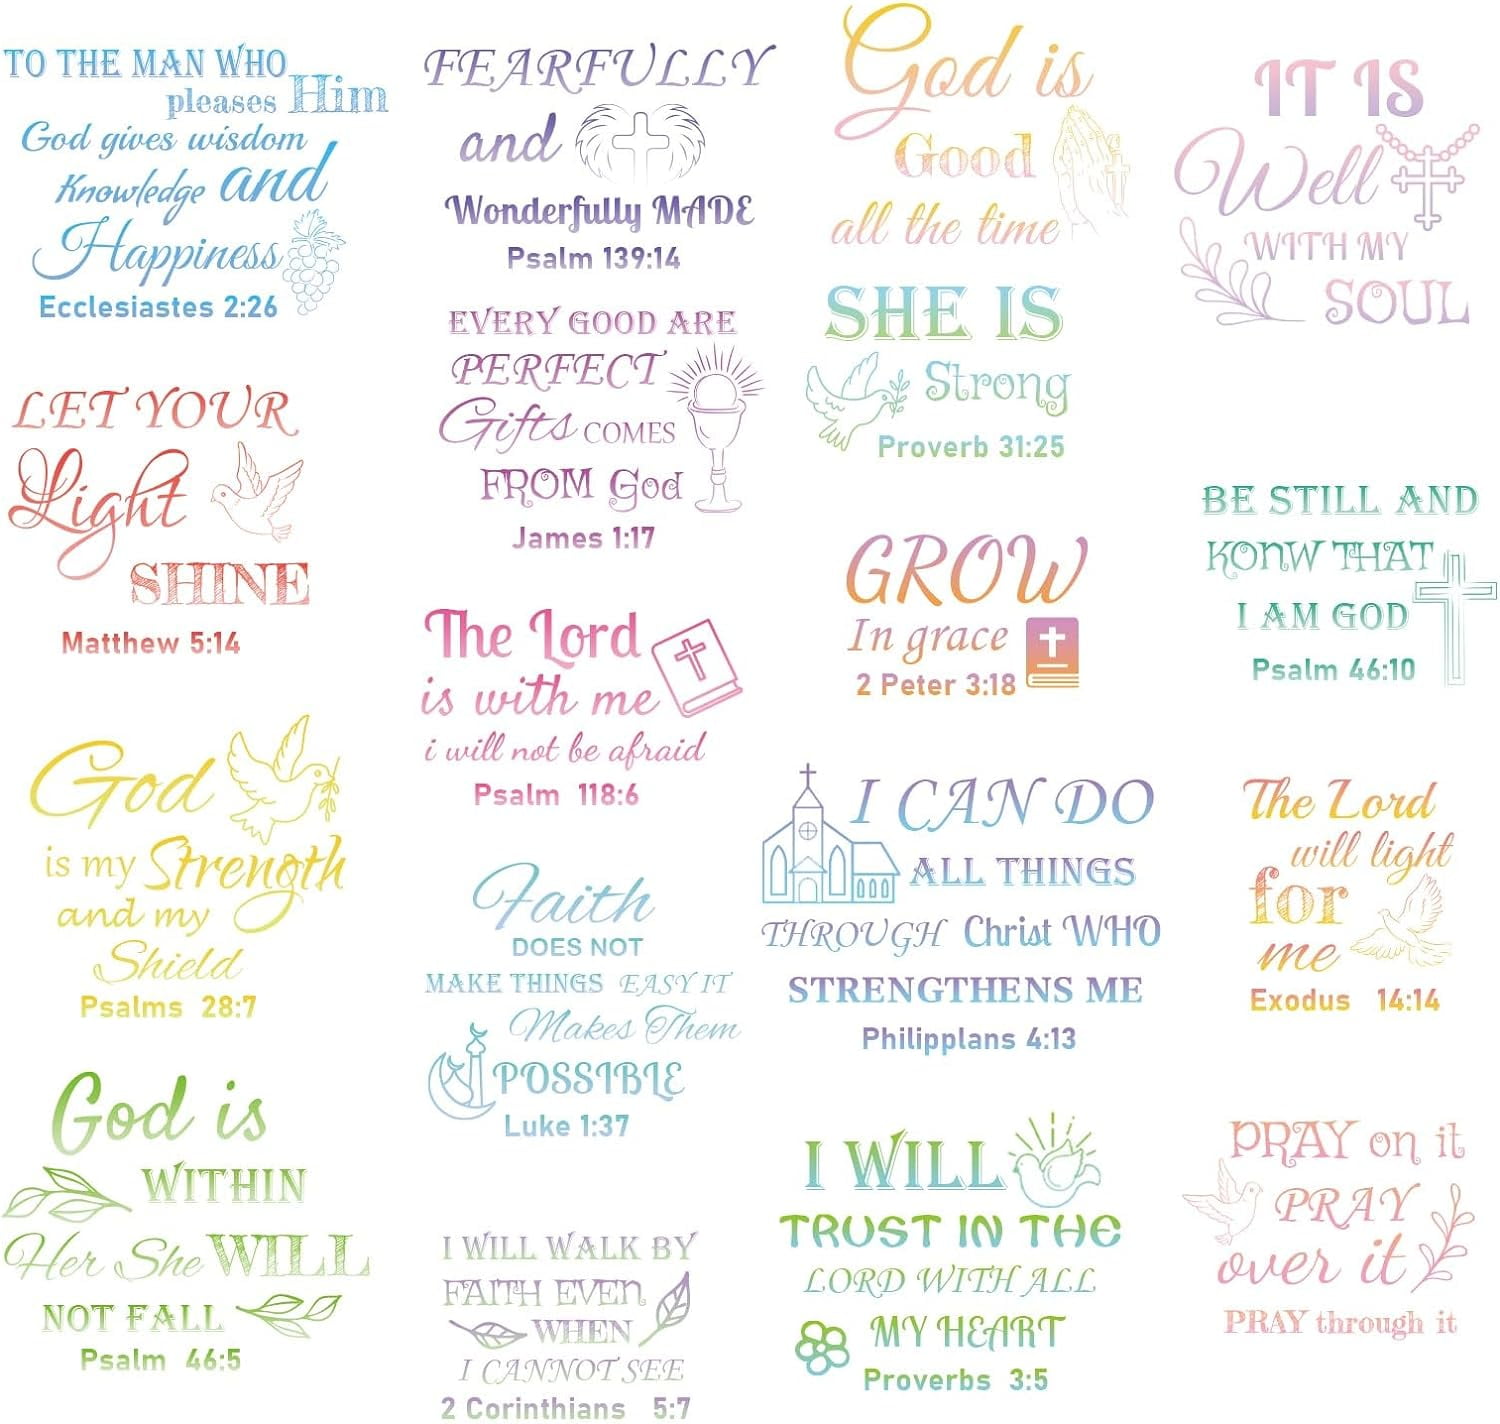 TO THE MAN WHO
pleases Him
God gives wisdom
Knowledge and
Happiness
Ecclesiastes 2:26
LET YOUR
Light
SHINE
Matthew 5:14
God
is my Strength
and my
Shield
Psalms 28:7
God is
WITHIN
Her She WILL
NOT FALL
Psalm 46:5
FEARFULLY
and
Wonderfully MADE
Psalm 139:14
EVERY GOOD ARE
PERFECT
Gifts COMES
FROM God
James 1:17
The Lord
is with me
i will not be afraid
Psalm 118:6
Faith
DOES NOT
MAKE THINGS EASY IT
Makes Them
POSSIBLE
Luke 1:37
I WILL WALK BY
FAITH EVEN
WHEN
I CANNOT SEE
2 Corinthians 5:7
God is
Good
all the time
SHE IS
Strong
Proverb 31:25
GROW
In grace
2 Peter 3:18
I CAN DO
ALL THINGS
THROUGH Christ WHO
STRENGTHENS ME
Philipplans 4:13
I WILL
TRUST IN THE
LORD WITH ALL
MY HEART
Proverbs 3:5
IT IS
Well
WITH MY
SOUL
BE STILL AND
KONW THAT
I AM GOD
Psalm 46:10
The Lord
will light
for
me
Exodus 14:14
PRAY on it
PRAY
over it
PRAY through it